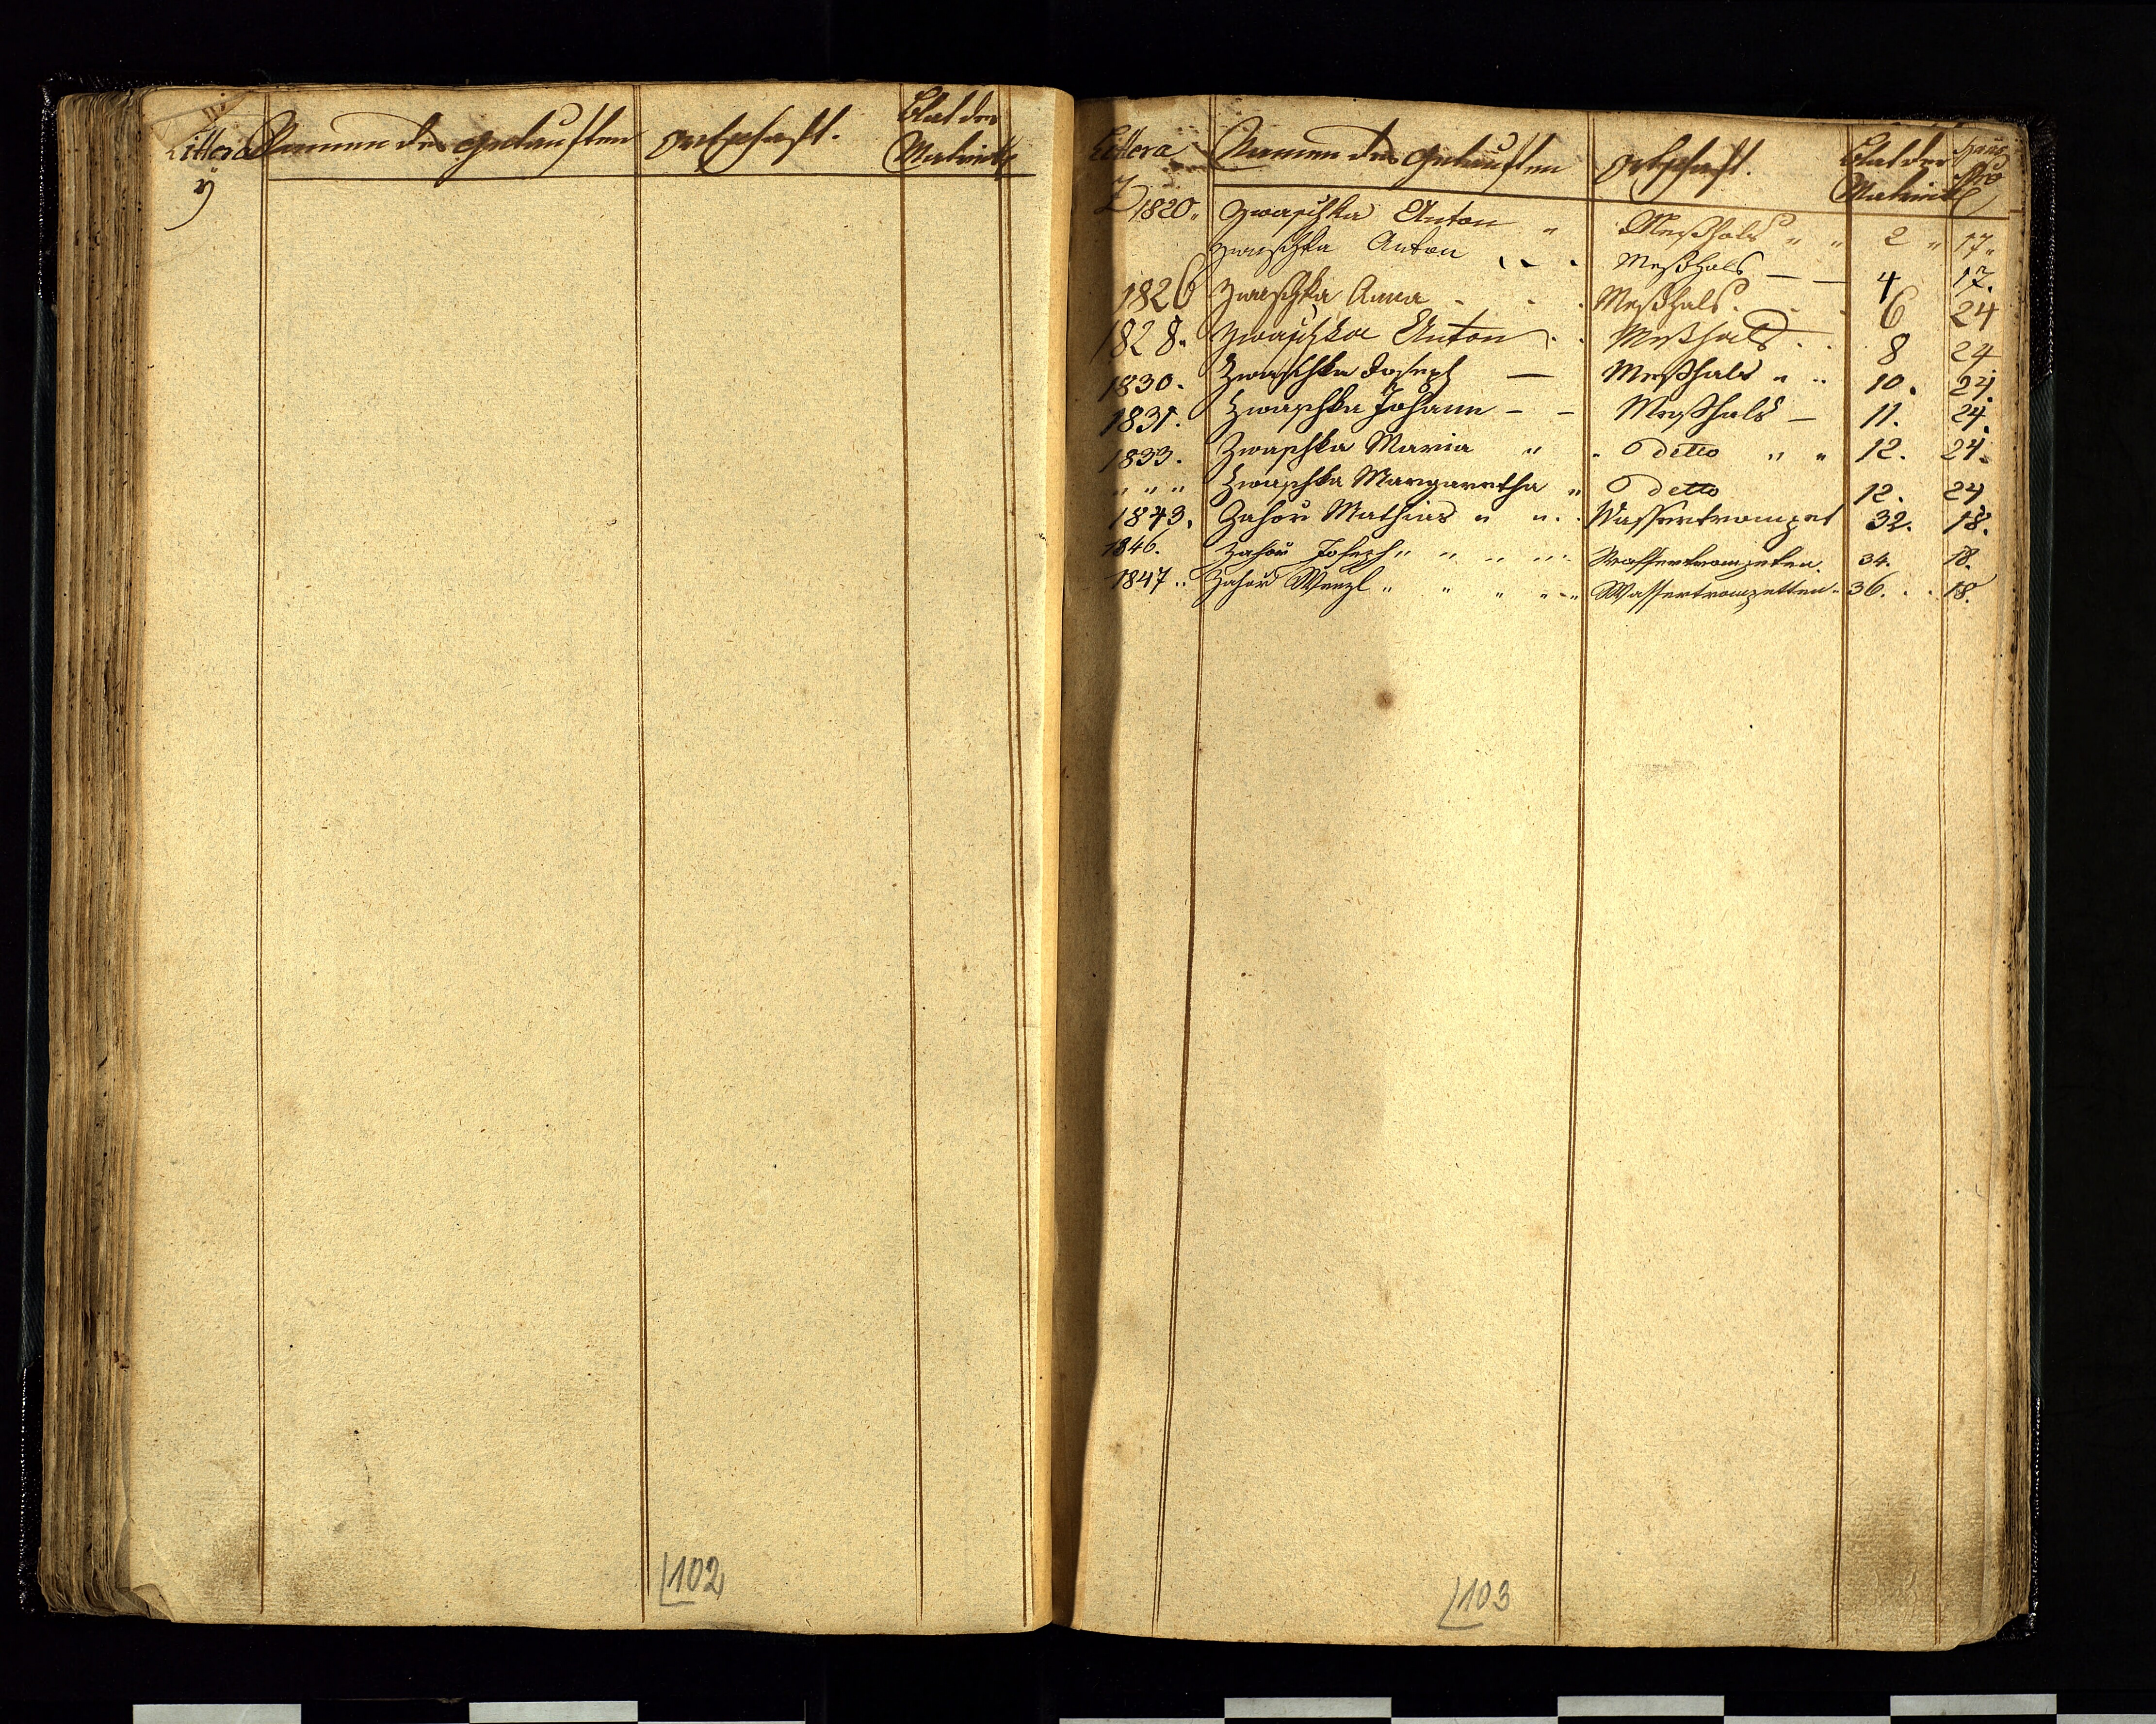 Littera Namen der Getauften Ortschaft. Blat der Matrick
y
102
Littera Namen des Getauften Ortschaft. Blat der Matrick Haus Nro
Z 1820. Zwaschka Anton " Meßhals " " 2 " 17 "
Zwaschka Anton Meßhals — — 4 17.
1826 Zwaschka Anna Meßhals. 6 24
1828. Zwaschka Anton Meßhals 8 24
1830. Zwaschka Joseph — Meßhals " " 10. 24.
1831. Zwaschka Johann — — Meßhals — 11. 24.
1833. Zwaschka Maria " " detto " " 12. 24.
" " " Zwaschka Margaretha " detto 12. 24
1843. Zahor Mathias " " Wassertrompet 32. 18.
1846. Zahor Joseph " " " " Wassertrompeten. 34. 18.
1847 " Zahor Wenzl " " " " Wassertrompetten. 36. 18.
103